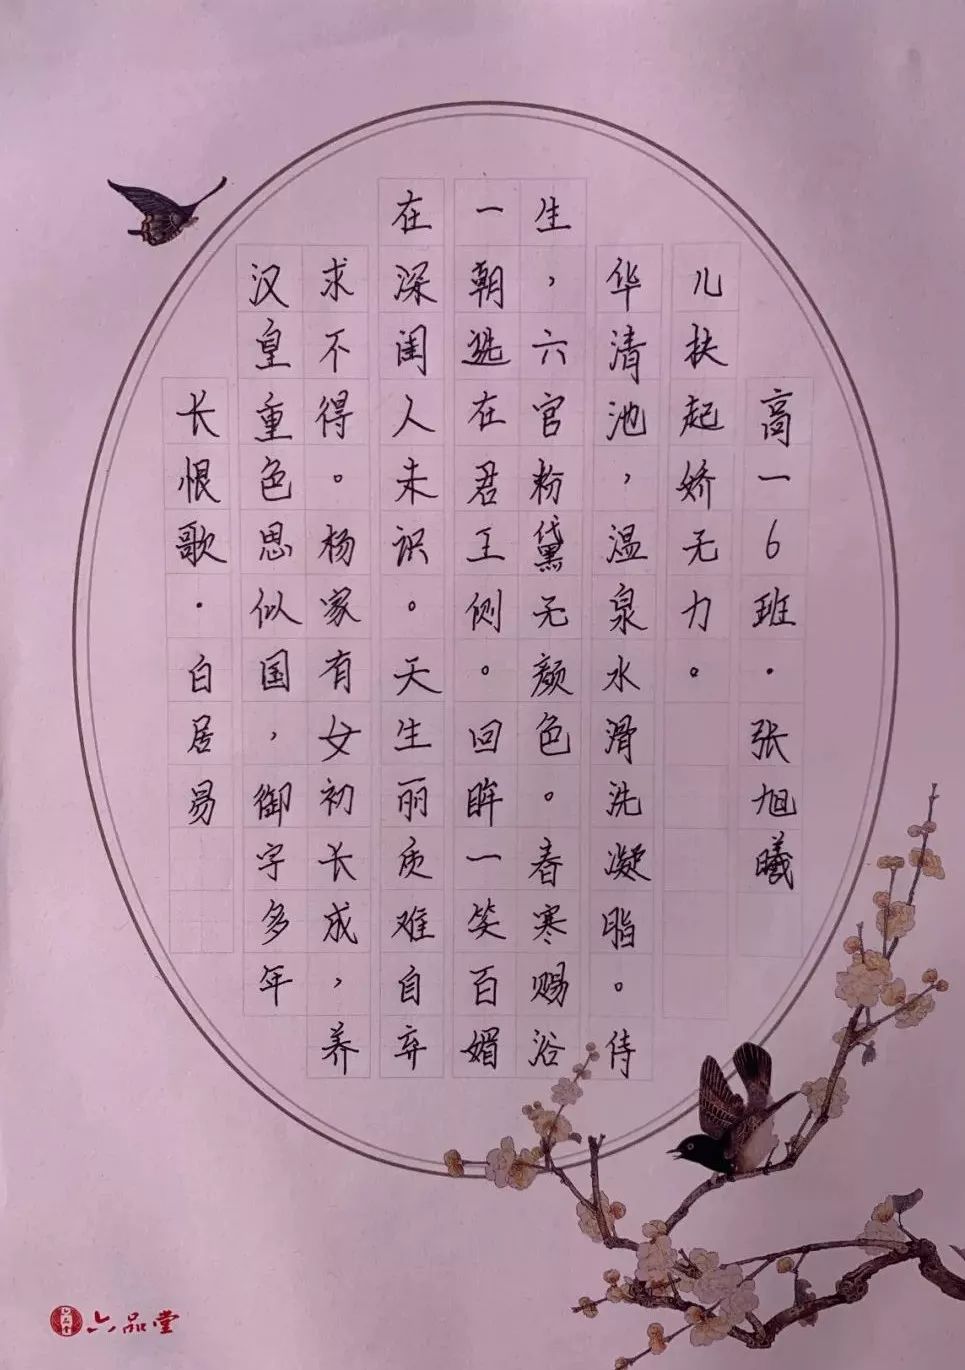 长恨歌·白居易
汉皇重色思似国，御字多年
求不得。杨家有女初长成，养
在深闺人未识。天生丽质难自弃
一朝选在君王侧。回眸一笑百媚
生，六宫粉黛无颜色。春寒赐浴
华清池，温泉水滑洗凝脂。侍
儿扶起娇无力。
高一6班·张旭曦
六品堂